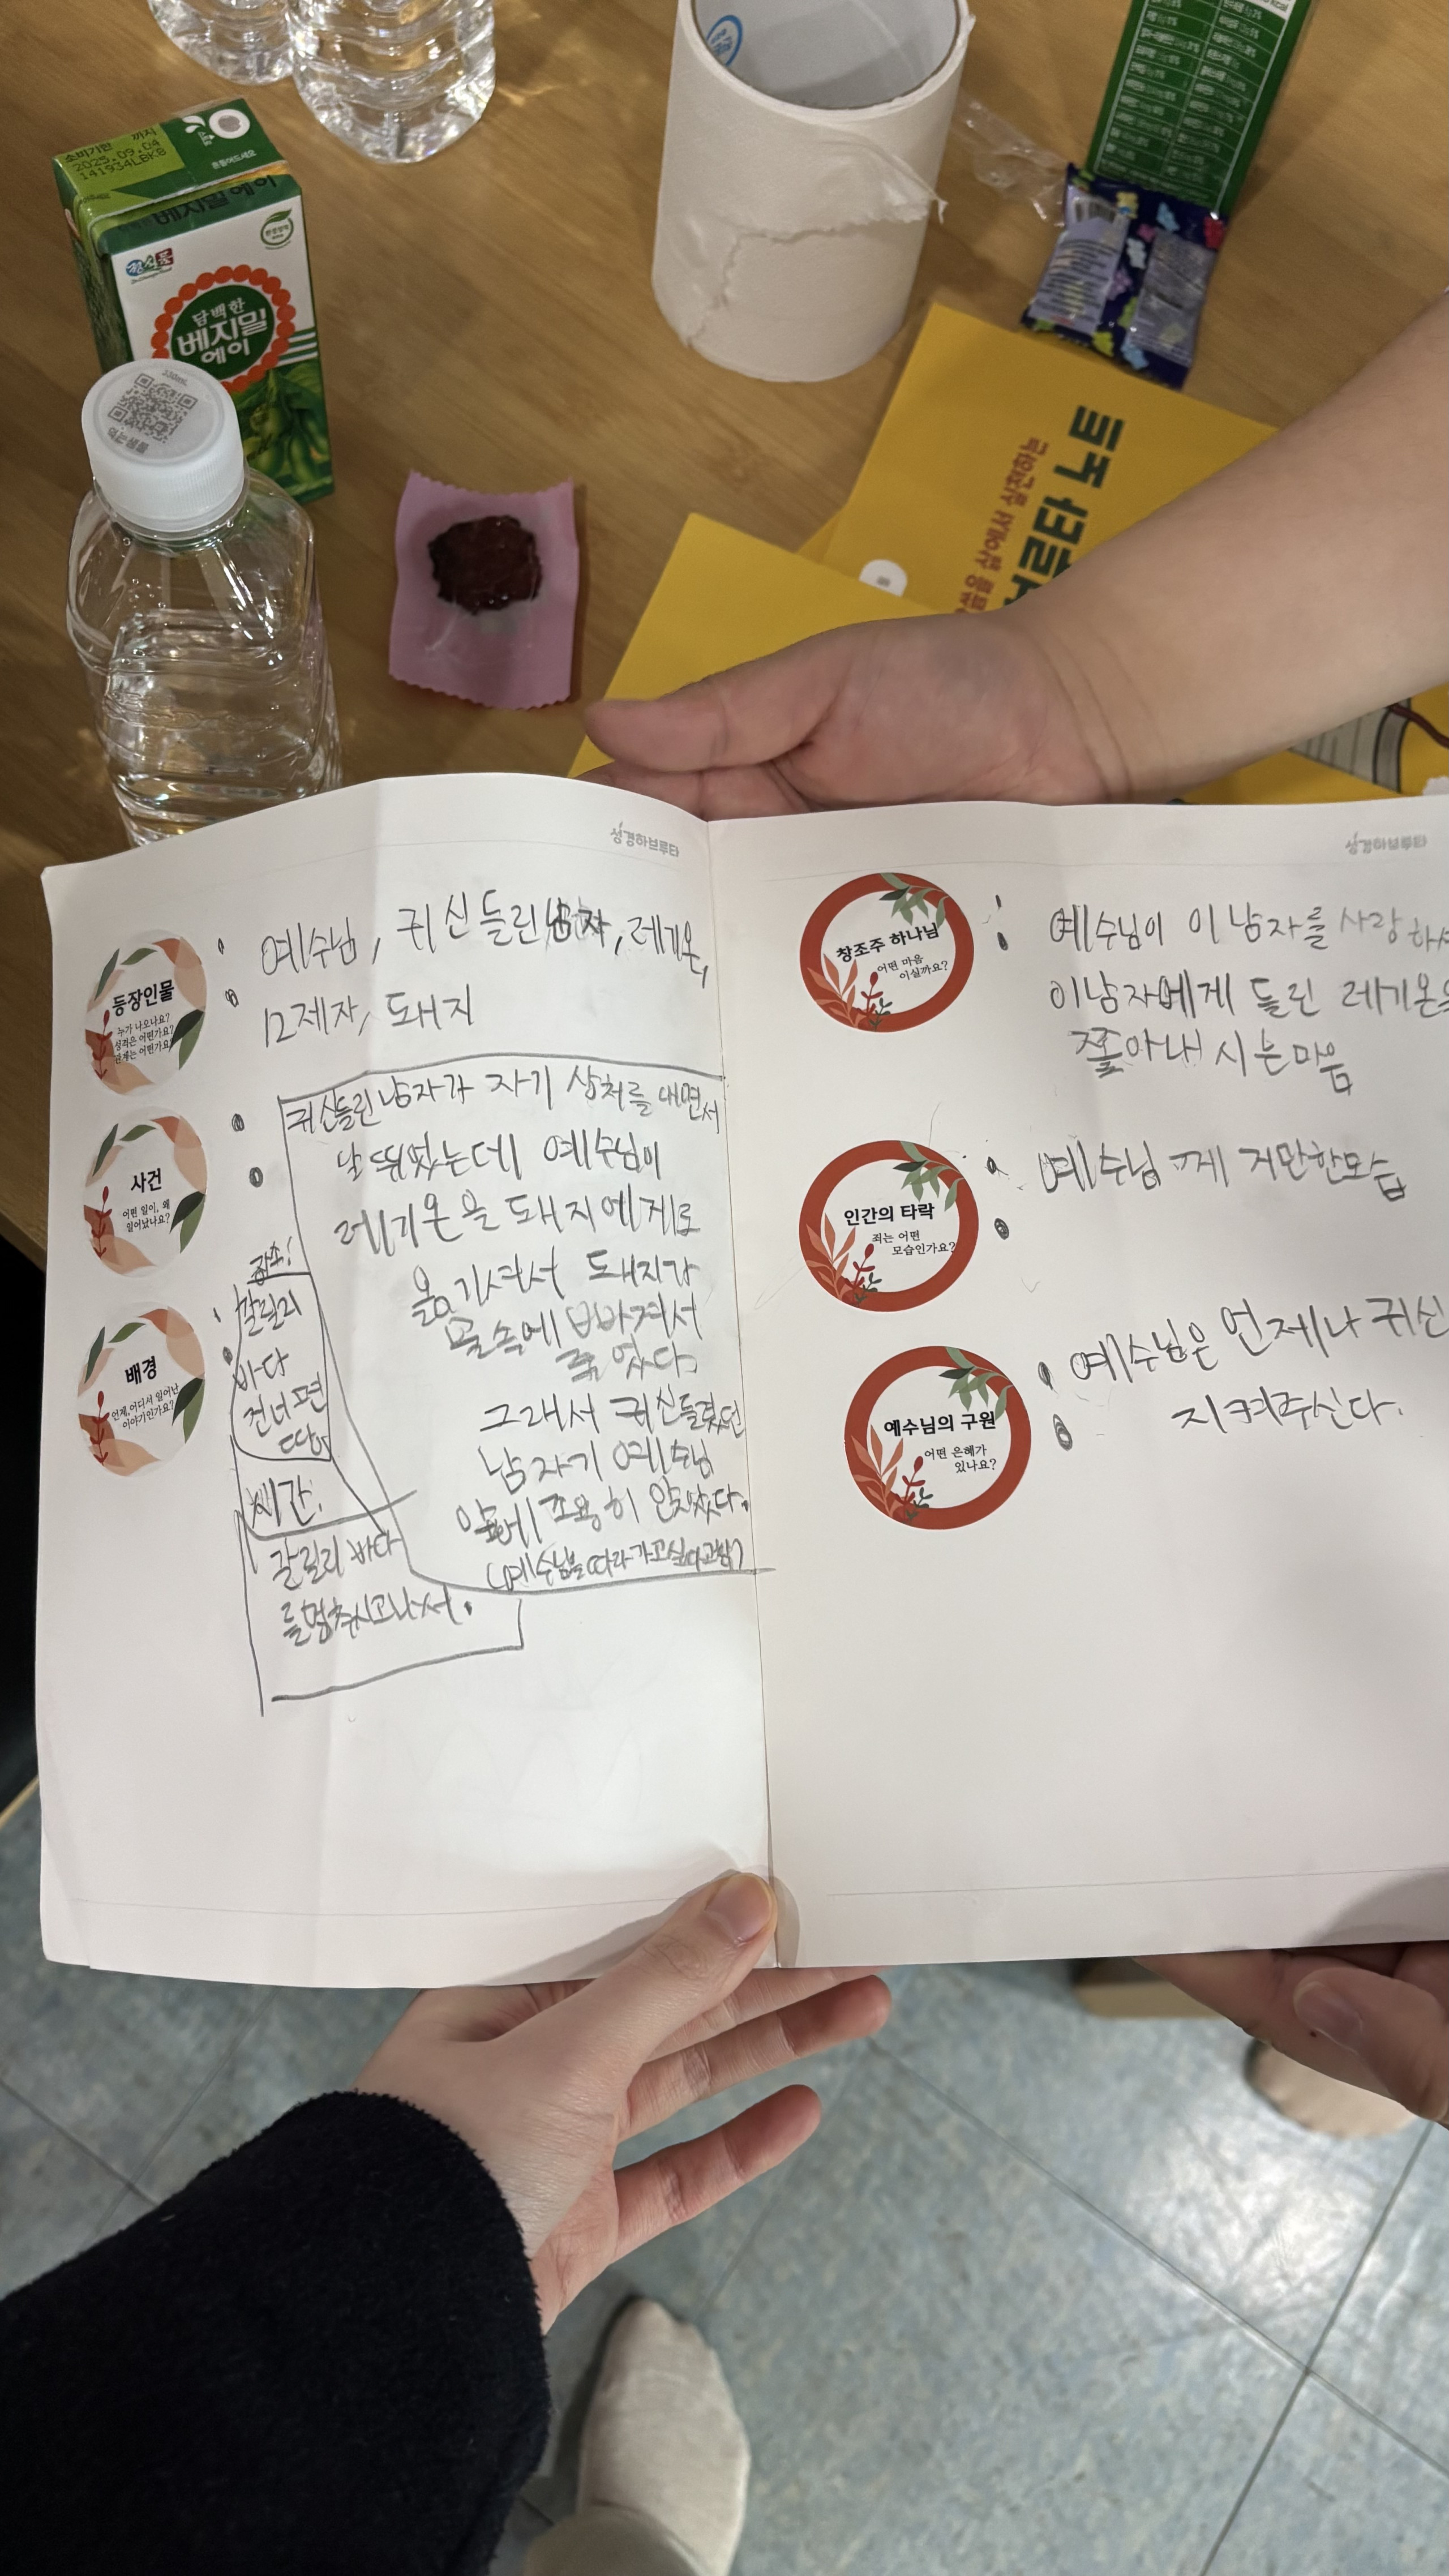 소비기한 까지
2025.09.04
141934LBK8
흔들어드세요
베지밀 에이
정식품
담백한
베지밀
에이
330mL
먹는샘물
말씀을 삶에서 실천하는
성경하브루타
등장인물
누가 나오나요?
성격은 어떤가요?
관계는 어떤가요?
: 예수님, 귀신들린남자, 레기온,
12제자, 돼지
사건
어떤 일이, 왜
일어났나요?
: 귀신들린 남자가 자기 상처를 내면서
날뛰었는데 예수님이
레기온을 돼지에게로
옮기셔서 돼지가
물속에 빠져서
죽었다.
그래서 귀신들렸던
남자기 예수님
앞에 조용히 앉았다.
(예수님을 따라가고싶다고함)
배경
언제, 어디서 일어난
이야기인가요?
: 장소:
갈릴리
바다
건너편
땅
시간:
갈릴리 바다
를멈추시고나서.
성경하브루타
창조주 하나님
어떤 마음
이실까요?
: 예수님이 이 남자를 사랑하셔
이남자에게 들린 레기온을
쫓아내시는마음
인간의 타락
죄는 어떤
모습인가요?
: 예수님께 거만한모습
예수님의 구원
어떤 은혜가
있나요?
: 예수님은 언제나 귀신
지켜주신다.